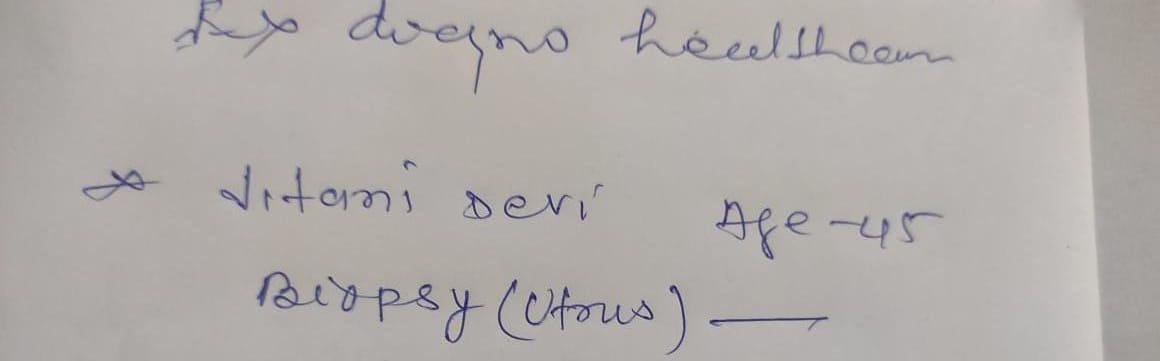 diagno healthcare
Jitani Devi Age-45
Biopsy (Utrus) —